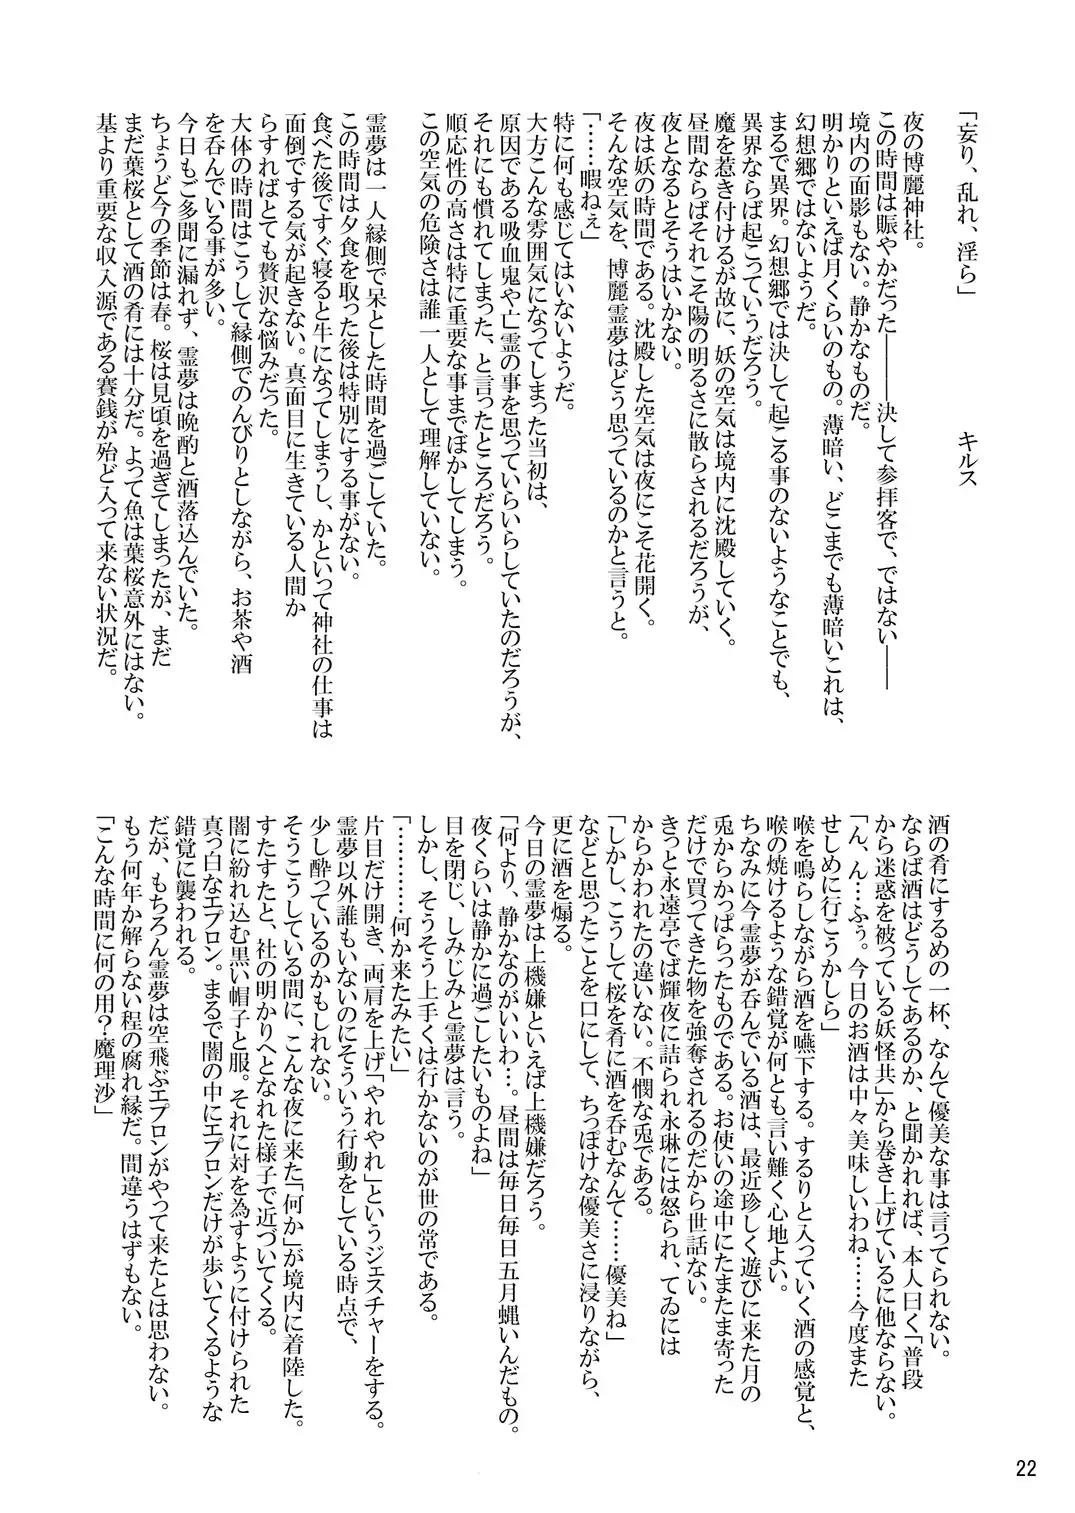 「妄り、乱れ、淫ら」　　　キルス
夜の博麗神社。
この時間は賑やかだった―――決して参拝客で、ではない――
境内の面影もない。静かなものだ。
明かりといえば月くらいのもの。薄暗い、どこまでも薄暗いこれは、
幻想郷ではないようだ。
まるで異界。幻想郷では決して起こる事のないようなことでも、
異界ならば起こっていうだろう。
魔を惹き付けるが故に、妖の空気は境内に沈殿していく。
昼間ならばそれこそ陽の明るさに散らされるだろうが、
夜となるとそうはいかない。
夜は妖の時間である。沈殿した空気は夜にこそ花開く。
そんな空気を、博麗霊夢はどう思っているのかと言うと。
「……暇ねぇ」
特に何も感じてはいないようだ。
大方こんな雰囲気になってしまった当初は、
原因である吸血鬼や亡霊の事を思っていらいらしていたのだろうが、
それにも慣れてしまった、と言ったところだろう。
順応性の高さは特に重要な事までぼかしてしまう。
この空気の危険さは誰一人として理解していない。
霊夢は一人縁側で呆とした時間を過ごしていた。
この時間は夕食を取った後は特別にする事がない。
食べた後ですぐ寝ると牛になってしまうし、かといって神社の仕事は
面倒でする気が起きない。真面目に生きている人間か
らすればとても贅沢な悩みだった。
大体の時間はこうして縁側でのんびりとしながら、お茶や酒
を呑んでいる事が多い。
今日もご多聞に漏れず、霊夢は晩酌と洒落込んでいた。
ちょうど今の季節は春。桜は見頃を過ぎてしまったが、まだ
まだ葉桜として酒の肴には十分だ。よって魚は葉桜意外にはない。
基より重要な収入源である賽銭が殆ど入って来ない状況だ。
酒の肴にするめの一杯、なんて優美な事は言ってられない。
ならば酒はどうしてあるのか、と聞かれれば、本人曰く「普段
から迷惑を被っている妖怪共」から巻き上げているに他ならない。
「ん、ん…ふぅ。今日のお酒は中々美味しいわね……今度また
せしめに行こうかしら」
喉を鳴らしながら酒を嚥下する。するりと入っていく酒の感覚と、
喉の焼けるような錯覚が何とも言い難く心地よい。
ちなみに今霊夢が呑んでいる酒は、最近珍しく遊びに来た月の
兎からかっぱらったものである。お使いの途中にたまたま寄った
だけで買ってきた物を強奪されるのだから世話ない。
きっと永遠亭でば輝夜に詰られ永琳には怒られ、てゐには
からかわれたの違いない。不憫な兎である。
「しかし、こうして桜を肴に酒を呑むなんて……優美ね」
などと思ったことを口にして、ちっぽけな優美さに浸りながら、
更に酒を煽る。
今日の霊夢は上機嫌といえば上機嫌だろう。
「何より、静かなのがいいわ…。昼間は毎日毎日五月蝿いんだもの。
夜くらいは静かに過ごしたいものよね」
目を閉じ、しみじみと霊夢は言う。
しかし、そうそう上手くは行かないのが世の常である。
「…………何か来たみたい」
片目だけ開き、両肩を上げ「やれやれ」というジェスチャーをする。
霊夢以外誰もいないのにそういう行動をしている時点で、
少し酔っているのかもしれない。
そうこうしている間に、こんな夜に来た「何か」が境内に着陸した。
すたすたと、社の明かりへとなれた様子で近づいてくる。
闇に紛れ込む黒い帽子と服。それに対を為すように付けられた
真っ白なエプロン。まるで闇の中にエプロンだけが歩いてくるような
錯覚に襲われる。
だが、もちろん霊夢は空飛ぶエプロンがやって来たとは思わない。
もう何年か解らない程の腐れ縁だ。間違うはずもない。
「こんな時間に何の用？魔理沙」
22